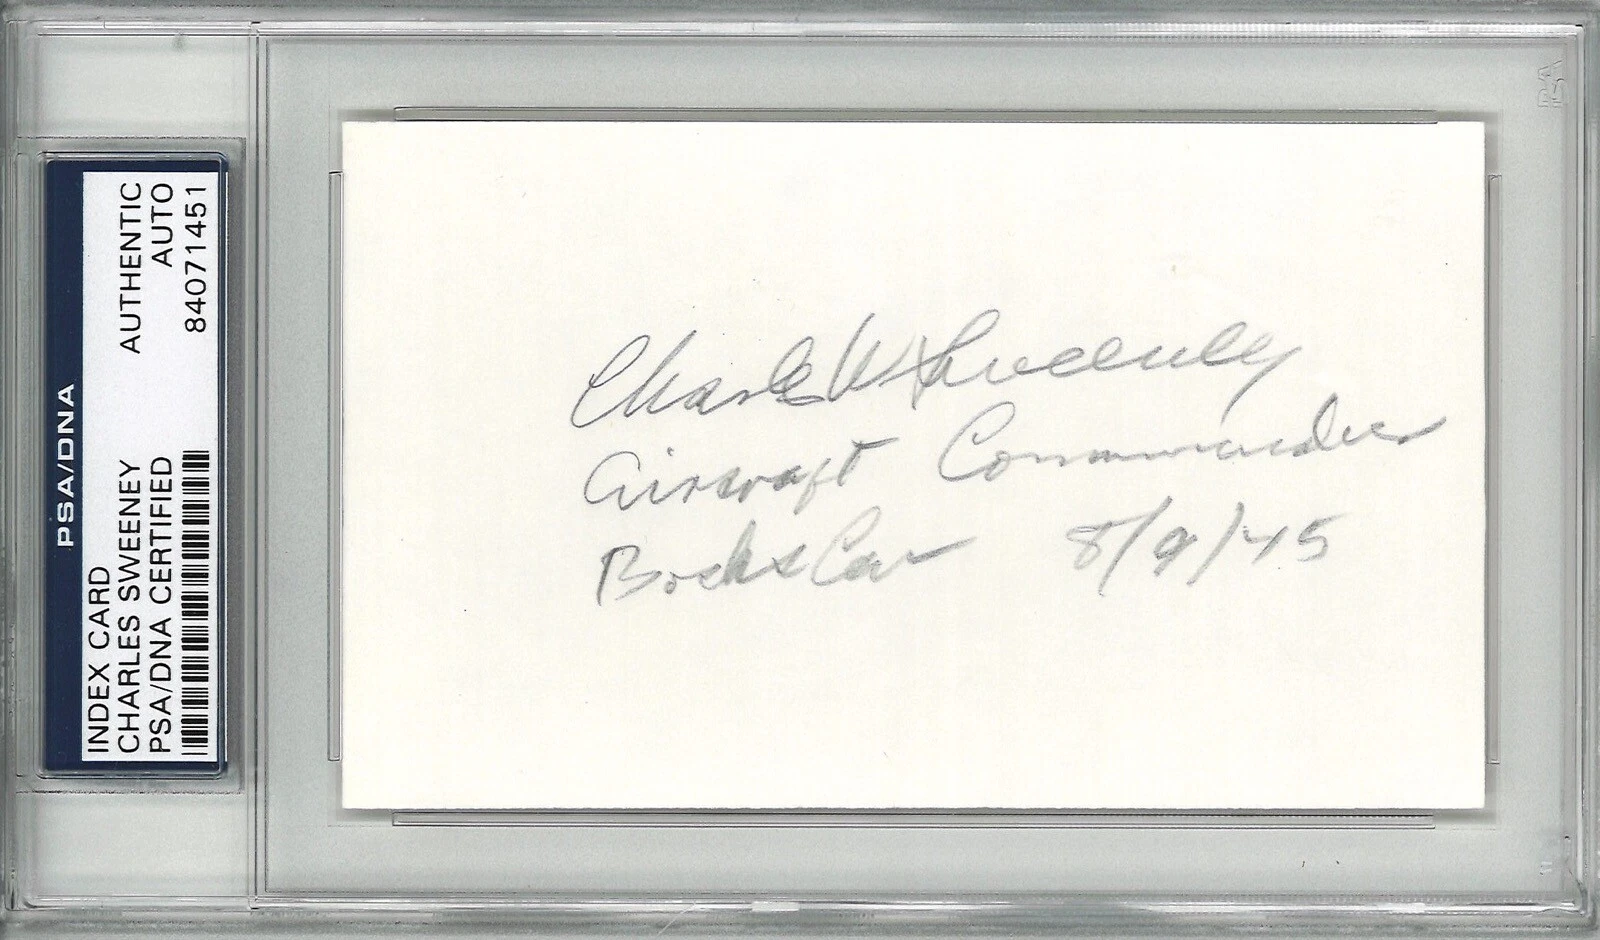 PSA/DNA
INDEX CARD
CHARLES SWEENEY
PSA/DNA CERTIFIED
AUTHENTIC
AUTO
84071451
Charles W Sweeney
Aircraft Commander
Bocks Car 8/9/45
PSA